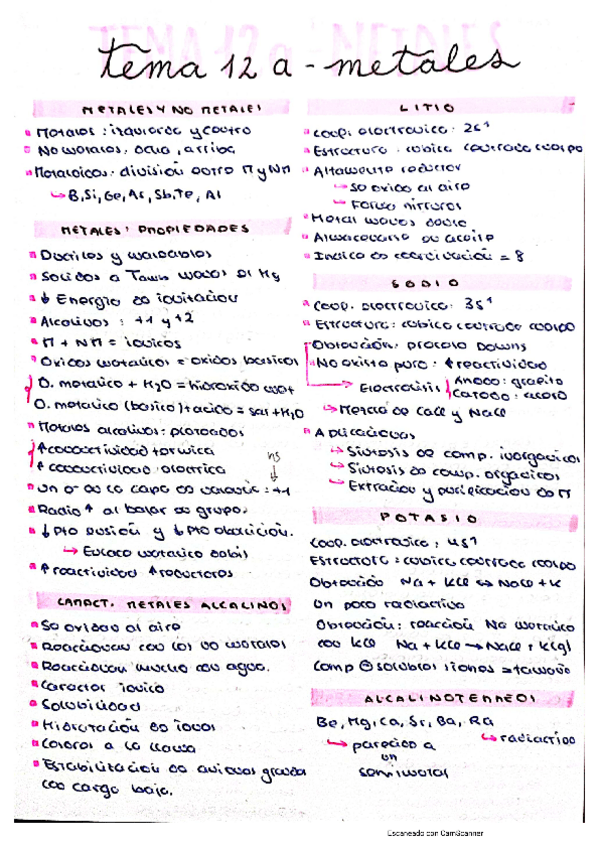 tema 12 a - metales
METALES Y NO METALES
Metales: izquierda y centro
No metales: dcha, arriba
Metaloides: división entre M y NM
↳ B, Si, Ge, As, Sb, Te, At
METALES: PROPIEDADES
Ductiles y maleables
Solidos a Tamb menos el Hg
↓ Energía de ionización
Alcalinos: +1 y +2
M + NM = iónicos
Oxidos metalicos = oxidos basicos
O. metalico + H2O = hidroxido
O. metalico (basico) + acido = sal + H2O
Metales alcalinos: plateados
↑ conductividad termica
↑ conductividad electrica
ns
un e- en la capa de valencia: +1
Radio ↑ al bajar en grupo.
↓ Pto fusión y ↓ Pto ebullición.
↳ Enlace metalico debil
↑ reactividad ↑ reductores
CARACT. METALES ALCALINOS
Se oxidan al aire
Reaccionan con los no metales
Reaccionan mucho con agua.
Caracter ionico
Solubilidad
Hidratación de iones
Colores a la llama
Estabilización de aniones grandes
con carga baja.
LITIO
Conf. electronica: 2s1
Estructura: cubica centrada cuerpo
Altamente reductor
↳ Se oxida al aire
↳ Forma nitruros
Metal menos denso
Almacenarlo en aceite
Indice de coordinación = 8
SODIO
Conf. electronica: 3s1
Estructura: cubica centrada cuerpo
Obtención: proceso Downs
No existe puro: ↑ reactividad
Electrolisis
Anodo: grafito
Catodo: acero
↳ Mezcla de CaCl2 y NaCl
Aplicaciones
↳ Sintesis de comp. inorganicos
↳ Sintesis de comp. organicos
↳ Extracion y purificacion de M
POTASIO
Conf. electronica: 4s1
Estructura: cubica centrada cuerpo
Obtención Na + KCl ↔ NaCl + K
un poco radiactivo
Obtención: reacción Na metalico
con KCl Na + KCl → NaCl + K(g)
Comp solubles iones = tamaño
ALCALINOTERREOS
Be, Mg, Ca, Sr, Ba, Ra
↳ parecido a
un
semimetal
↳ radiactivo
Escaneado con CamScanner